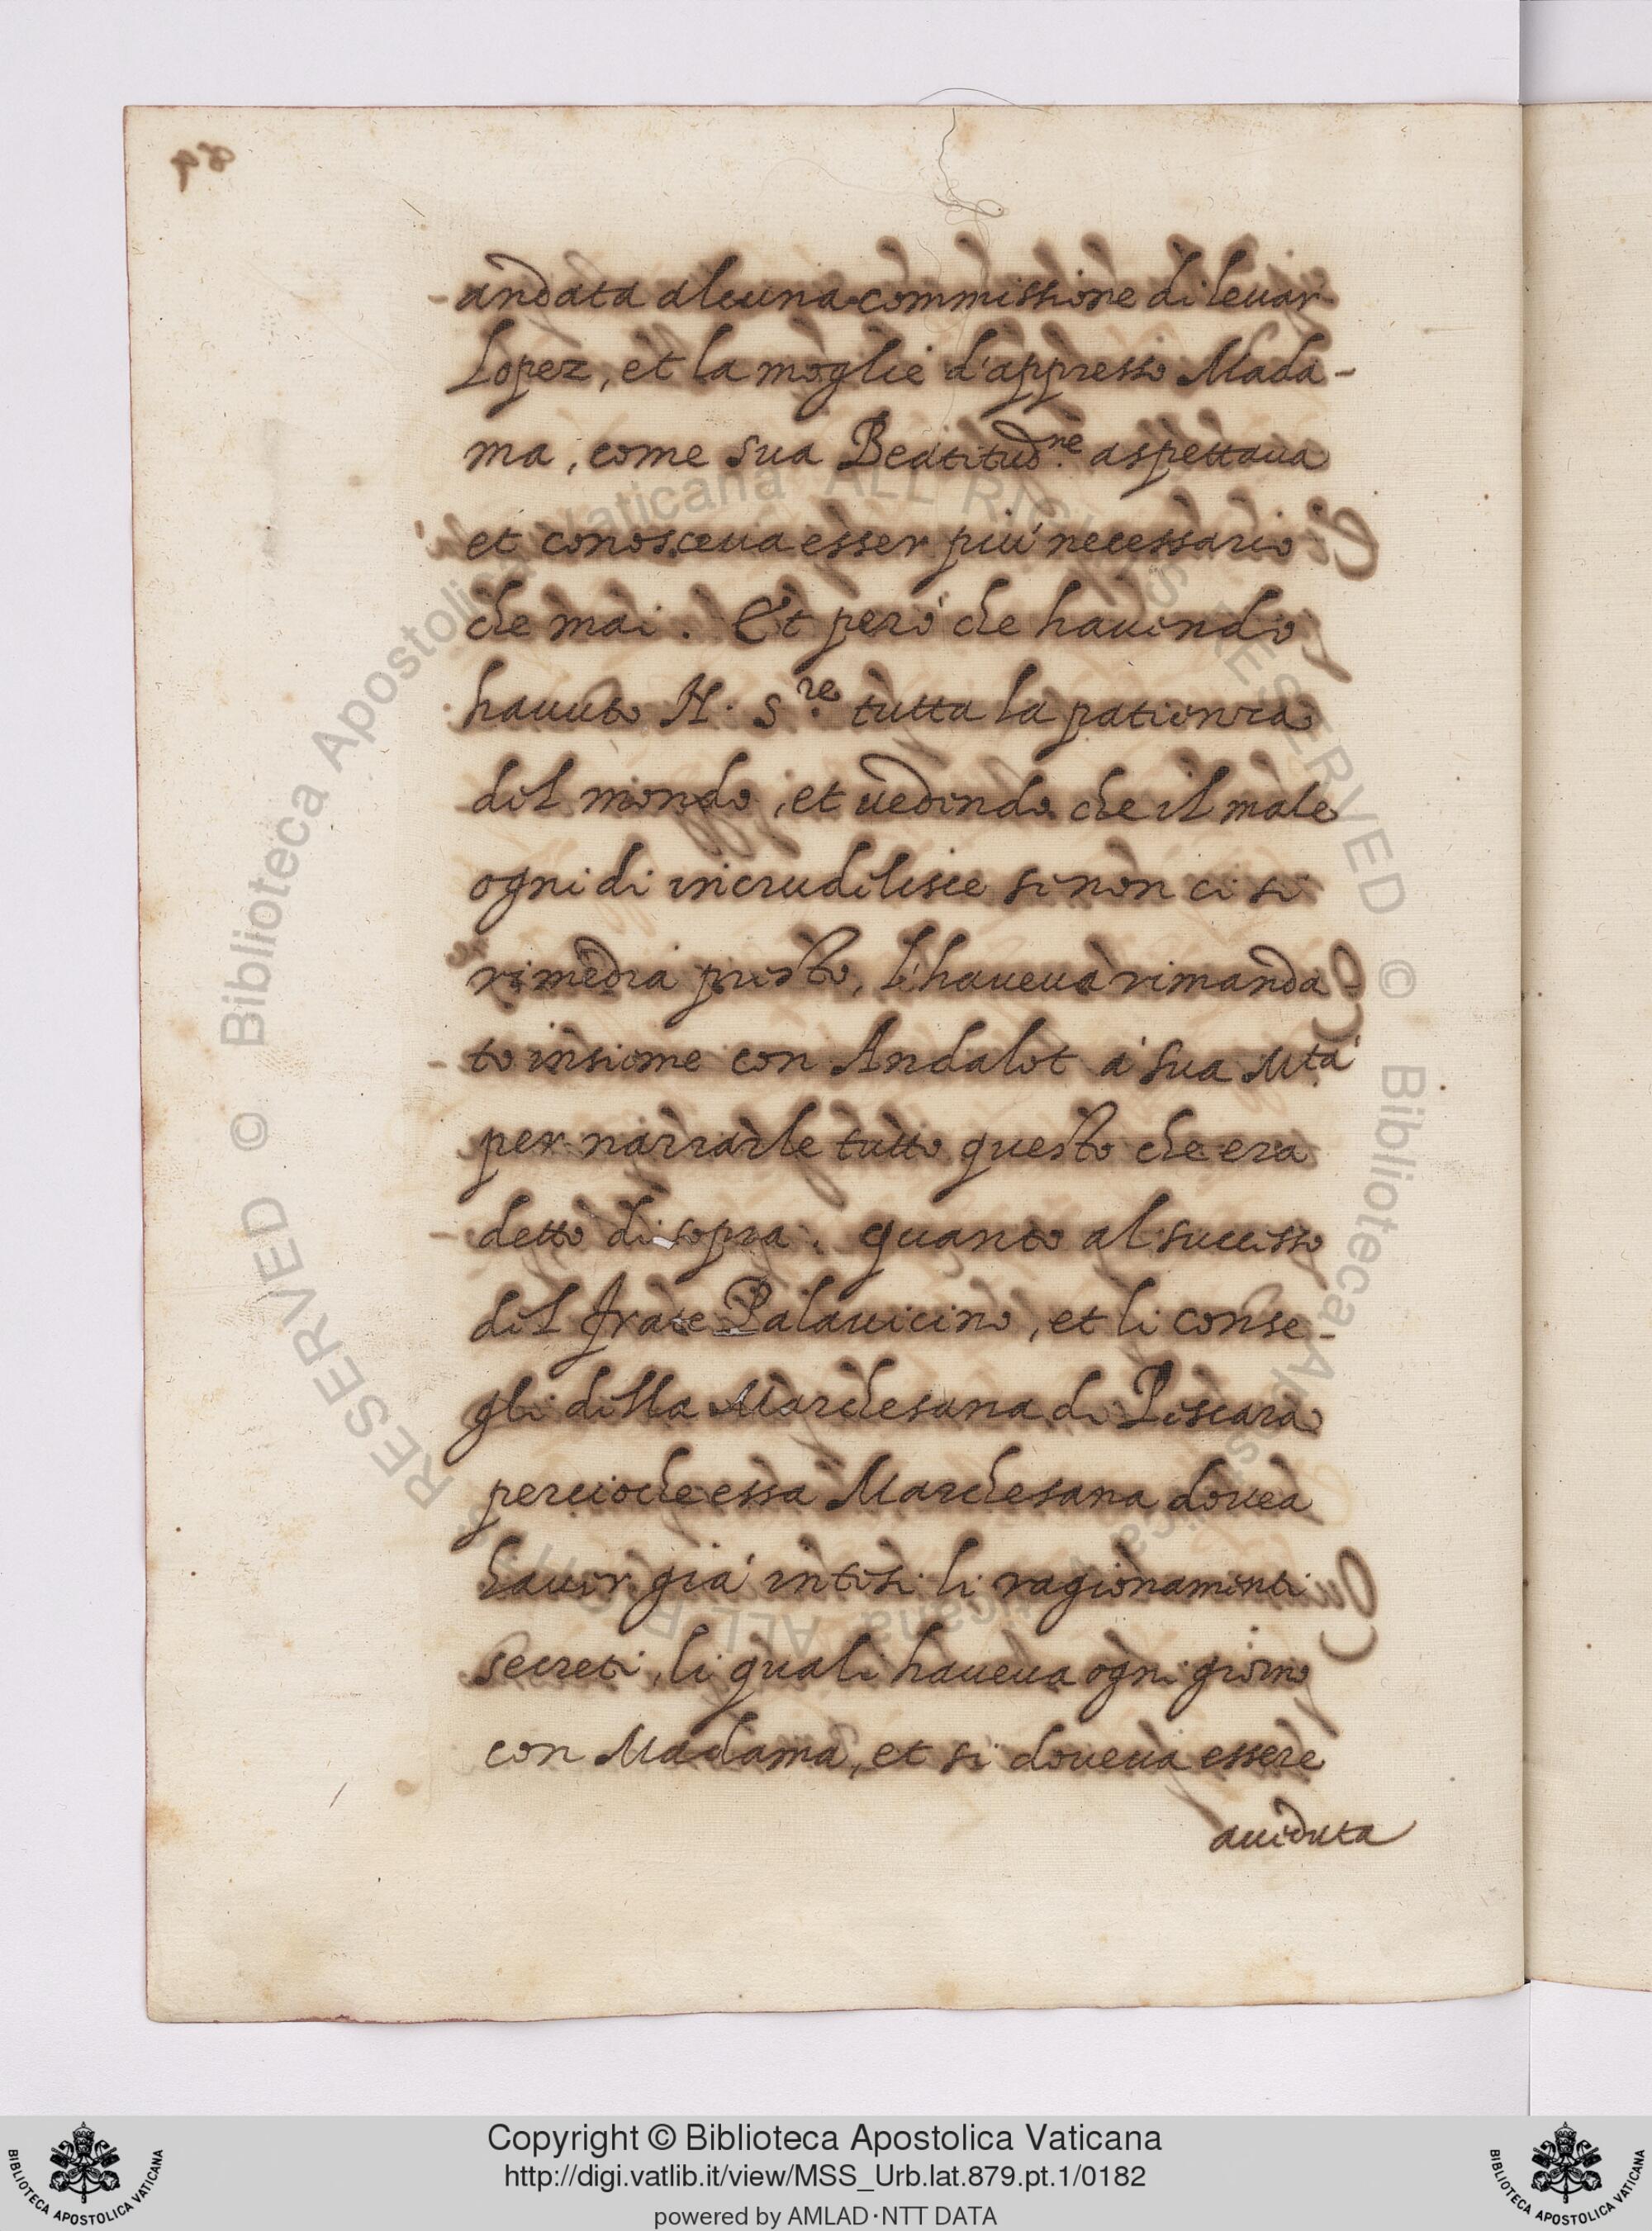 andata alcuna commissione di leuar
Lopez, et la moglie d'appresso Mada-
ma, come sua Beatitud.ne aspettaua
et conosceua esser più necessario
che mai. Et però che hauendo
hauuto N. S.re tutta la patienza
del mondo, et uedendo che il male
ogni di incrudelisce se non ci si
rimedia presto, l'haueua rimanda
to insieme con Andalot à sua M.tà
per narrarle tutto questo che era
detto di sopra. quanto al successo
del frate Palauicino, et li conse-
gli della Marchesana di Pescara
percioche essa Marchesana douea
hauer già intesi li ragionamenti
secreti, li quali haueua ogni giorno
con Madama, et si doueua essere
aueduta
RESERVED © Biblioteca Apostolica Vaticana ALL RIGHTS RESERVED © Biblioteca Apostolica Vaticana ALL RIGHTS
Copyright © Biblioteca Apostolica Vaticana
http://digi.vatlib.it/view/MSS_Urb.lat.879.pt.1/0182
powered by AMLAD·NTT DATA
BIBLIOTECA APOSTOLICA VATICANA
BIBLIOTECA APOSTOLICA VATICANA